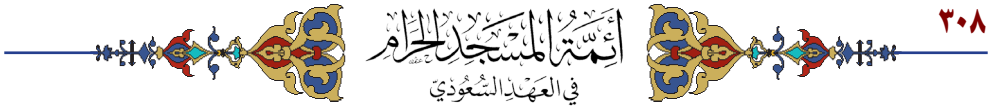 ٣٠٨
أَئِمَّةُ المَسْجِدِ الحَرَامِ
فِي العَهْدِ السُّعُودِيّ